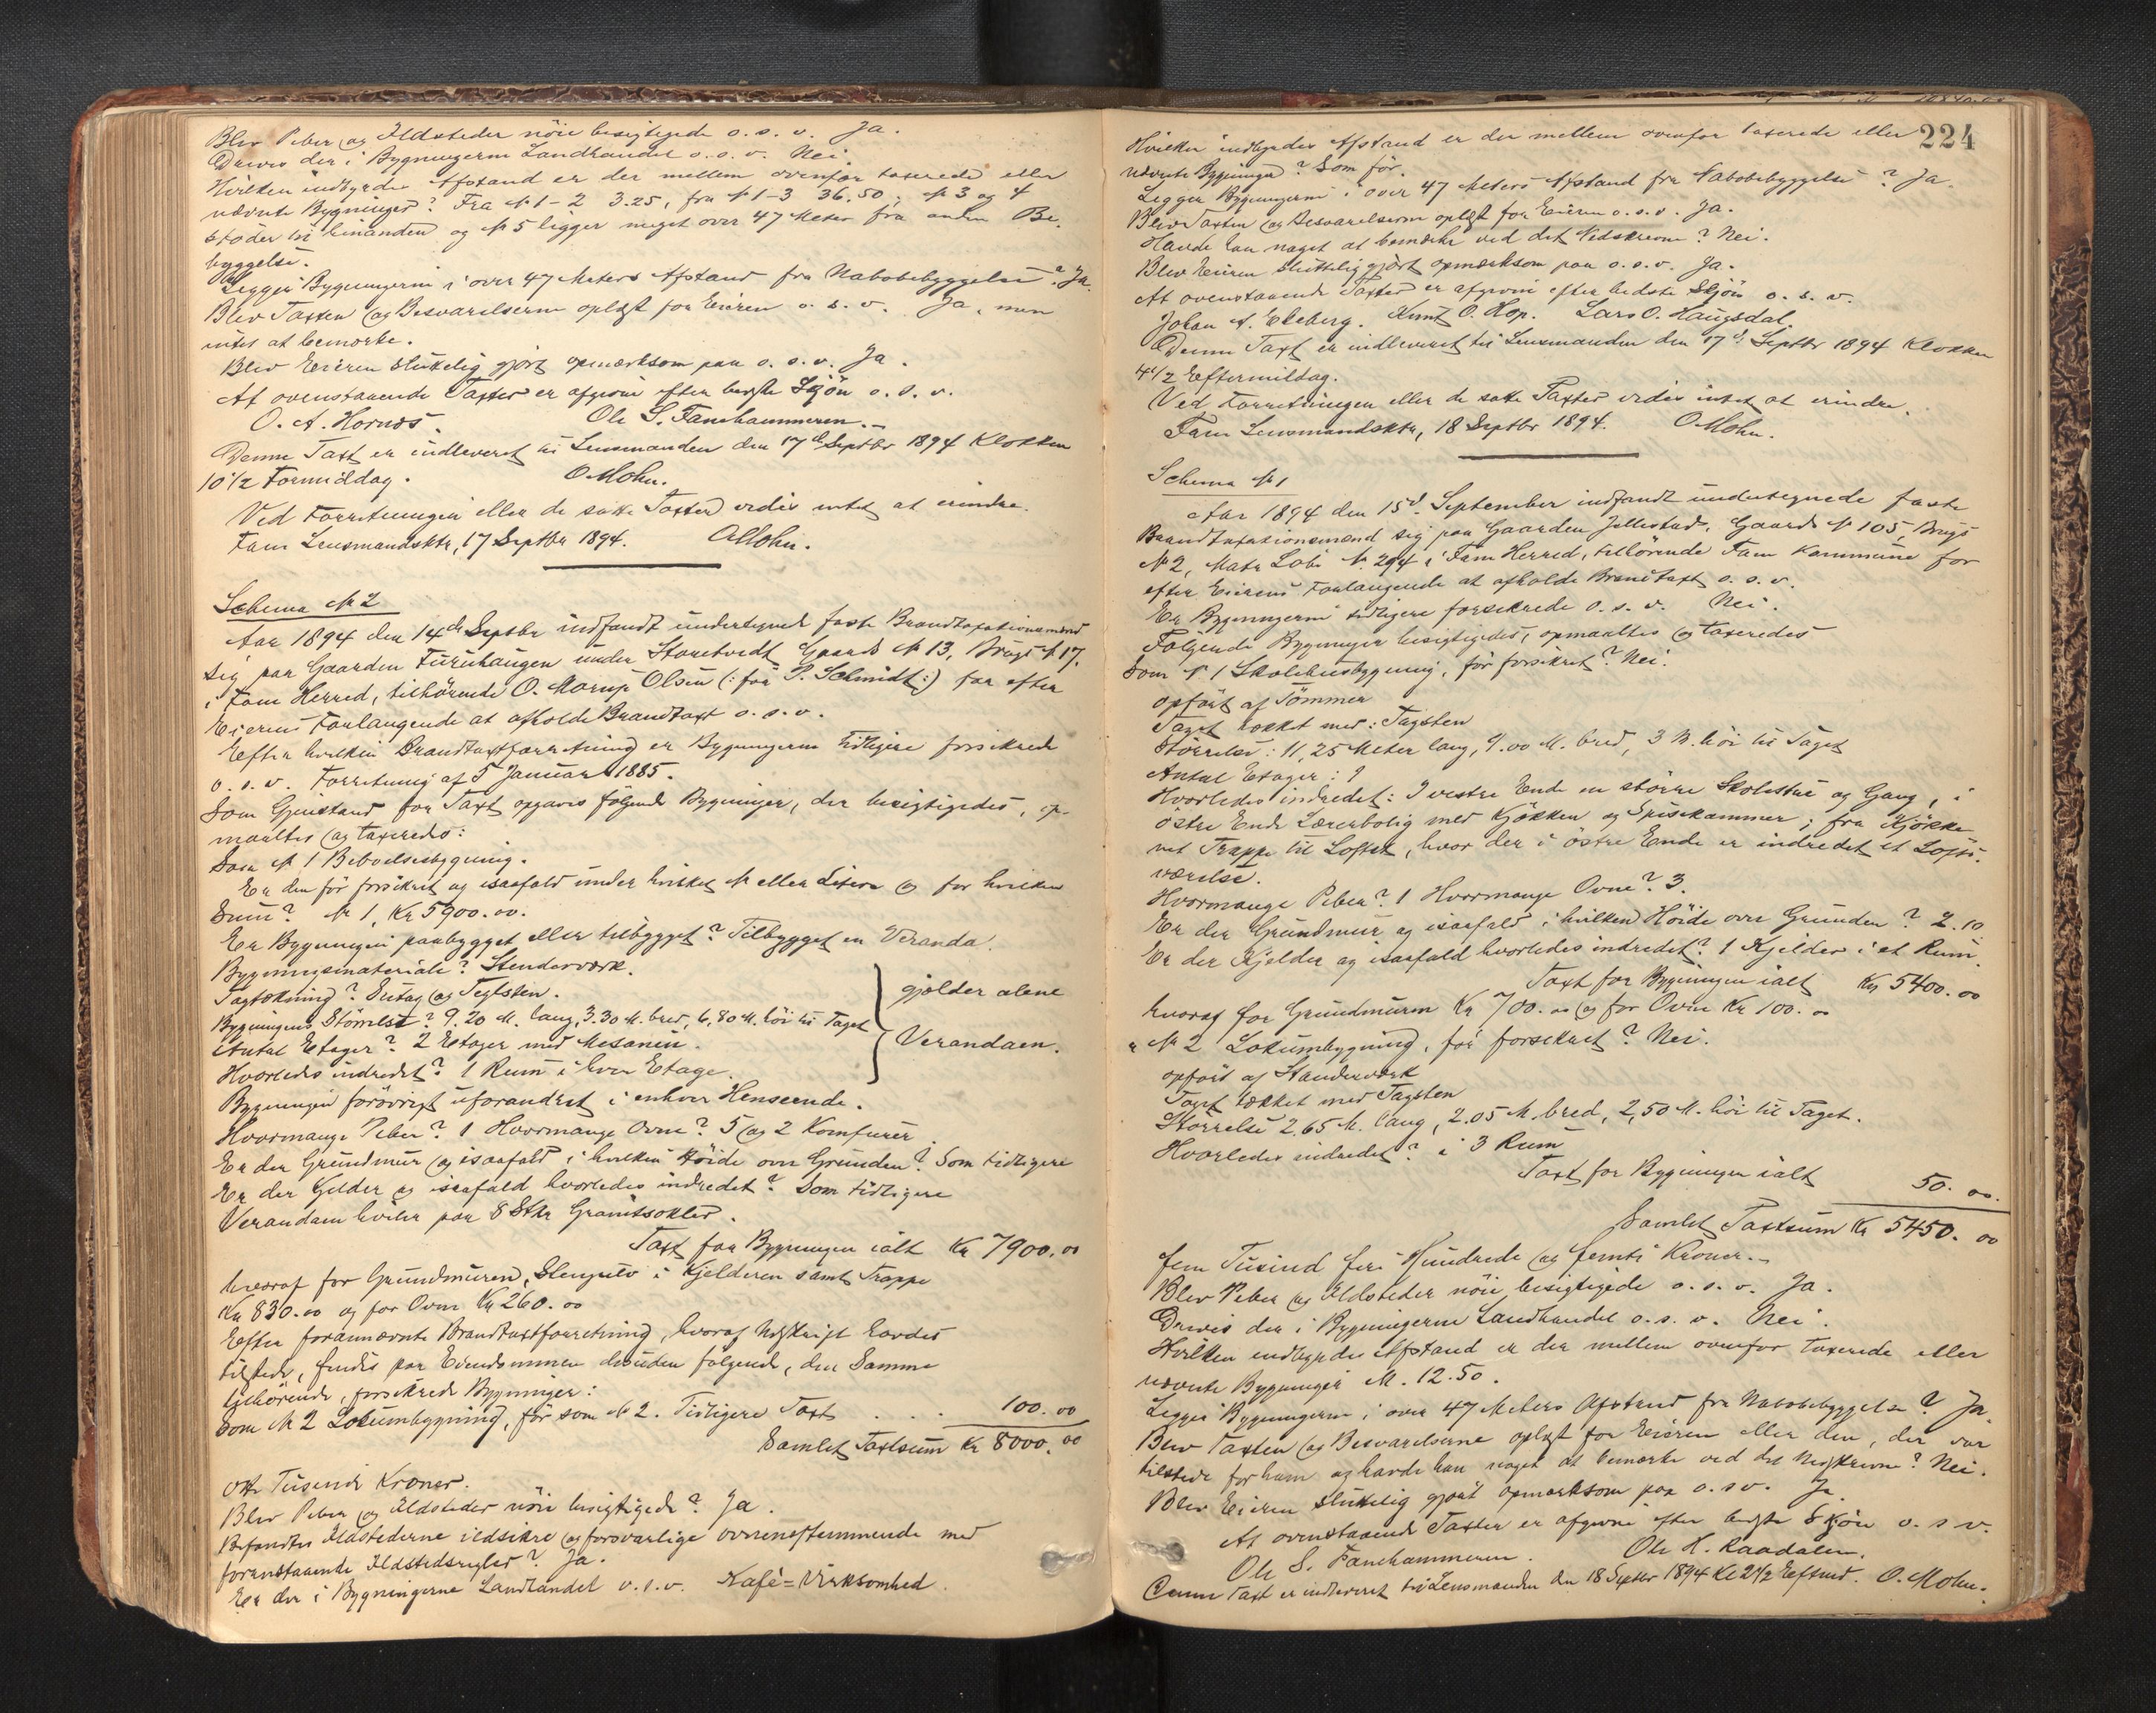 Blev Piber og Ildsteder nöie besigtigede o. s. v. Ja.
Drives der i Bygningerne Landhandel o. s. v. Nei.
Hvilken indbyrdes Afstand er der mellem ovenfor taxerede eller
nævnte Bygninger? Fra № 1-2 3.25, fra № 1-3 36.50, № 3 og 4
støder til hinanden og № 5 ligger meget over 47 Meter fra anden Be-
byggelse.
Ligger Bygningerne i over 47 Meters Afstand fra Nabobebyggelse? Ja.
Blev Taxten og Besvarelserne oplæst for Eieren o. s. v. Ja, men
intet at bemærke.
Blev Eieren sluttelig gjort opmærksom paa o. s. v. Ja.
At ovenstaaende Taxter er afgivne efter bedste Skjön o. s. v.
O. A. Hornæs. Ole S. Fanehammeren.
Denne Taxt er indleveret til Lensmanden den 17de Septbr 1894 Klokken
10 1/2 Formiddag. O Mohn.
Ved Forretningen eller de satte Taxter vides intet at erindre.
Fane Lensmandsktr, 17 Septbr 1894. O Mohn.
Schema № 2
Aar 1894 den 14de Septbr indfandt undertegnede faste Brandtaxationsmænd
sig paa Gaarden Furuhaugen under Storetvedt Gaards № 13, Brugs № 17.
i Fane Herred, tilhörende O. Marup Olsen (: för P. Schmidt :) for efter
Eierens Forlangende at afholde Brandtaxt o. s. v.
Efter hvilken Brandtaxtforretning er Bygningerne tidligere forsikrede
o. s. v. Forretning af 5 Januar 1885.
Som Gjenstand for Taxt opgaves fölgende Bygninger, der besigtigedes, op-
maaltes og taxeredes:
Som № 1 Beboelsesbygning.
Er den för forsikret og isaafald under hvilket № eller Litera og for hvilken
Sum? № 1, Kr 5900.00.
Er Bygningen paabygget eller tilbygget? Tilbygget en Veranda.
Bygningsmateriale? Stenderværk.
Tagtækning? Sutag og Teglsten.
Bygningens Störrelse? 9.20 M. lang, 3.30 M. bred, 6,80 M. höi til Taget
Antal Etager? 2 Etager med Mesanin.
Hvorledes indredet? 1 Rum i hver Etage.
gjælder alene
Verandaen.
Bygningen forövrigt uforandret i enhver Henseende.
Hvormange Piber? 1 Hvormange Ovne? 5 og 2 Komfurer.
Er der Grundmur og isaafald i hvilken Höide over Grunden? Som tidligere
Er der Kjelder og isaafald hvorledes indredet? Som tidligere
Verandaen hviler paa 8 Stkr Granitsokler.
Taxt for Bygningen ialt Kr 7900.00
hvoraf for Grundmuren, Stengulv i Kjelderen samt Trappe
Kr 830.00 og for Ovne Kr 260.00
Efter forannævnte Brandtaxtforretning, hvoraf Udskrift havdes
tilstede, findes paa Eiendommen desuden fölgende, den Samme
tilhörende, forsikrede Bygninger:
Som № 2 Lokumbygning, för som № 2. Tidligere Taxt . . . 100.00
Samlet Taxtsum Kr 8000.00
otte Tusende Kroner.
Blev Piber og Ildsteder nöie besigtigede? Ja.
Befandtes Ildstederne ildsikre og forsvarlige overensstemmende med
foranstaaende Ildstedsregler? Ja.
Er der i Bygningerne Landhandel o. s. v. Kafé=Virksomhed.
224
Hvilken indbyrdes Afstand er der mellem ovenfor taxerede eller
nævnte Bygninger? Som för.
Ligger Bygningerne i over 47 Meters Afstand fra Nabobebyggelse? Ja.
Blev Taxten og Besvarelserne oplæst for Eieren o. s. v. Ja.
Havde han noget at bemærke ved det Nedskrevne? Nei.
Blev Eieren sluttelig gjort opmærksom paa o. s. v. Ja.
At ovenstaaende Taxter er afgivne efter bedste Skjön o. s. v.
Johan A. Ekeberg. Knut O. Hop. Lars O. Haugsdal.
Denne Taxt er indleveret til Lensmanden den 17de Septbr 1894 Klokken
4 1/2 Eftermiddag.
Ved Forretningen eller de satte Taxter vides intet at erindre.
Fane Lensmandsktr, 18 Septbr 1894. O Mohn.
Schema № 1
Aar 1894 den 15de September indfandt undertegnede faste
Brandtaxationsmænd sig paa Gaarden Jellestad, Gaards № 105, Brugs
№ 2, Matr Löbe № 294 i Fane Herred, tilhörende Fane Kommune for
efter Eierens Forlangende at afholde Brandtaxt o. s. v.
Er Bygningerne tidligere forsikrede o. s. v. Nei.
Fölgende Bygninger besigtigedes, opmaaltes og taxeredes
Som № 1 Skolehusbygning, för forsikret? Nei.
opfört af Tömmer
Taget tækket med: Tagsten
Störrelse: 11,25 Meter lang, 9.00 M. bred, 3 M. höi til Taget
Antal Etager: 1
Hvorledes indredet: I vestre Ende en större Skolestue og Gang, i
östre Ende Lærerbolig med Kjökken og Spisekammer; fra Kjökke-
net Trappe til Loftet, hvor der i östre Ende er indredet et Lofts-
værelse.
Hvormange Piber? 1 Hvormange Ovne? 3.
Er der Grundmur og isaafald i hvilken Höide over Grunden? 2.10
Er der Kjelder og isaafald hvorledes indredet? 1 Kjelder i et Rum.
Taxt for Bygningen ialt Kr 5400.00
hvoraf for Grundmuren Kr 700.00 og for Ovne Kr 100.00
" № 2 Lokumbygning, för forsikret? Nei.
opfört af Stenderværk
Taget tækket med Tagsten
Störrelse 2.65 M. lang, 2.05 M. bred, 2,50 M. höi til Taget.
Hvorledes indredet? i 3 Rum
Taxt for Bygningen ialt 50.00.
Samlet Taxtsum Kr 5450.00
fem Tusind fire Hundrede og femti Kroner.
Blev Piber og Ildsteder nöie besigtigede o. s. v. Ja.
Drives der i Bygningerne Landhandel o. s. v. Nei.
Hvilken indbyrdes Afstand er der mellem ovenfor taxerede eller
nævnte Bygninger M. 12.50.
Ligger Bygningerne i over 47 Meters Afstand fra Nabobebyggelse? Ja.
Blev Taxten og Besvarelserne oplæst for Eieren eller den, der var
tilstede for ham og havde han noget at bemærke ved det Nedskrevne? Nei.
Blev Eieren sluttelig gjort opmærksom paa o. s v. Ja.
At ovenstaaende Taxter er afgivne efter bedste Skjön o. s v.
Ole S. Fanehammeren. Ole K. Raadalen.
Denne Taxt er indleveret til Lensmanden den 18 Septbr 1894 Kl 2 1/2 Eftmd. O. Mohn.